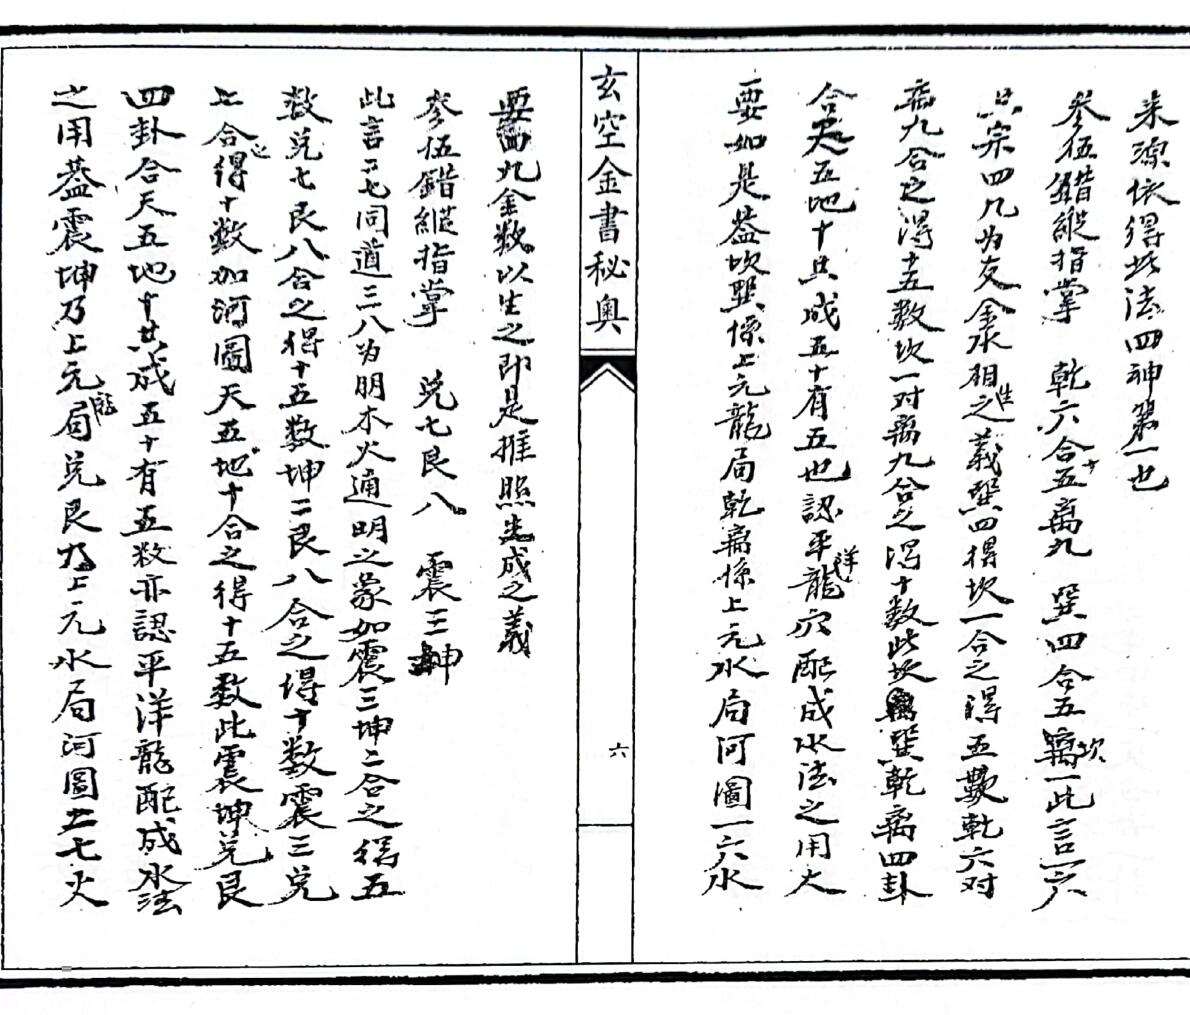 来源依得此法四神第一也
参伍錯縱指掌　乾六合五十离九　巽四合五坎一此言一六
共宗四九为友金水相生之義巽四得坎一合之得五數乾六对
离九合之得十五數坎一对离九合之得十數此坎巽乾离四卦
合天五地十共成五十有五也認平洋龍穴配成水法之用大
要如是蓋坎巽係上元龍局乾离係上元水局河圖一六水
玄空金書秘奥
六
要四九金數以生之即是推照生成之義
参伍錯縱指掌　兑七艮八　震三坤
此言二七同道三八为朋木火通明之象如震三坤二合之得五
数兑七艮八合之得十五数坤二艮八合之得十数震三兑
七合之得十数如河圖天五地十合之得十五数此震坤兑艮
四卦合天五地十共成五十有五数亦認平洋龍配成水法
之用蓋震坤乃上元龍局兑艮乃上元水局河圖二七火